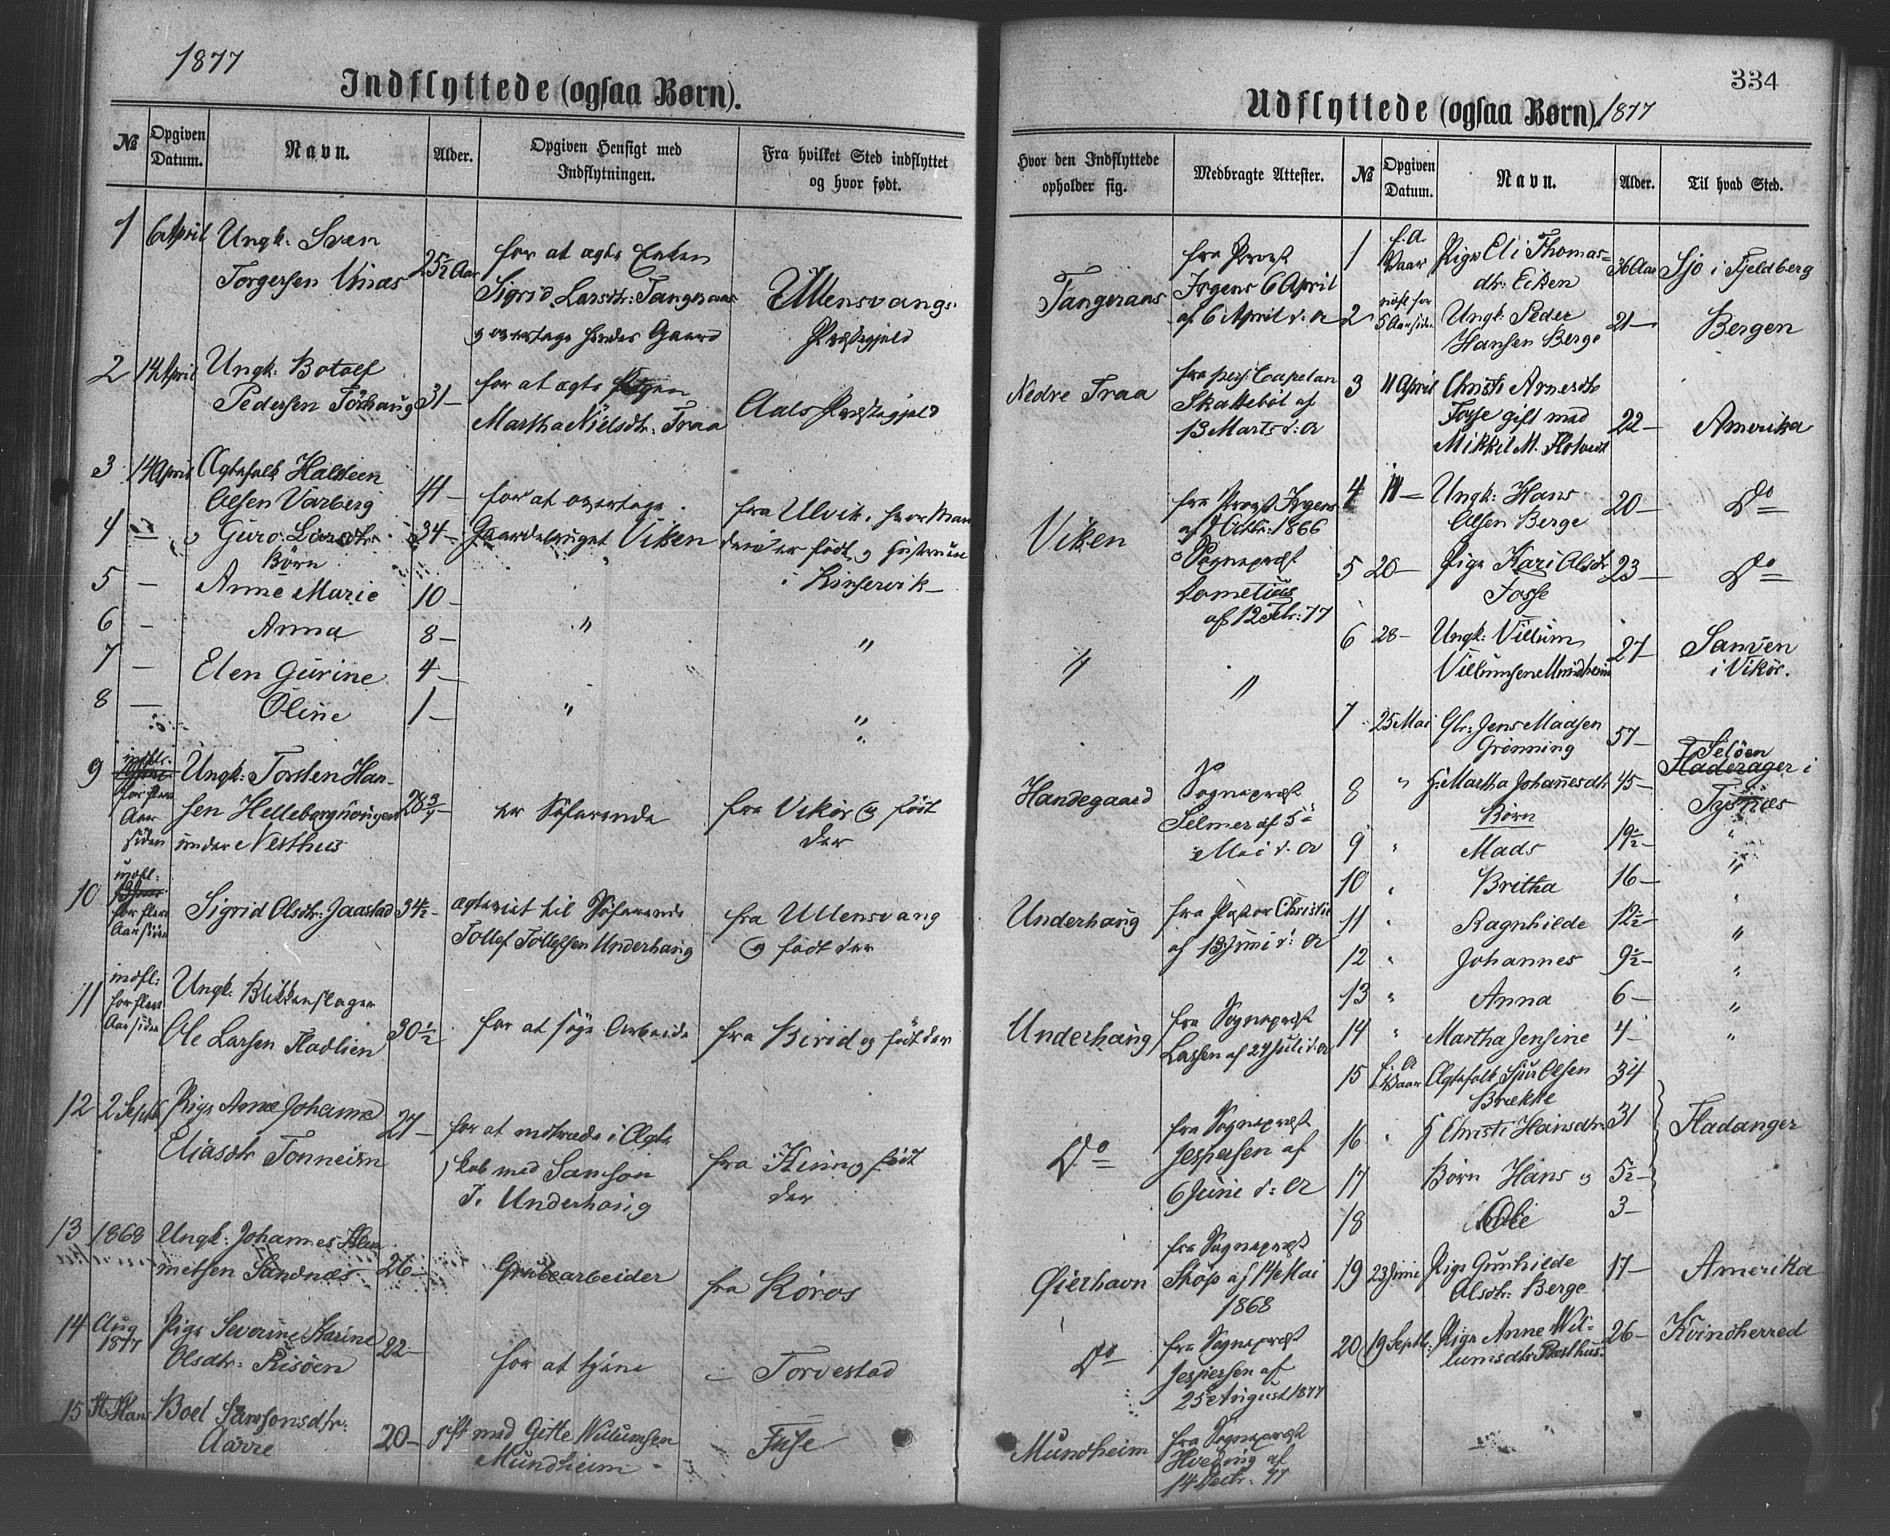 1877
Indflyttede (ogsaa Børn).
№
Opgiven Datum.
Navn.
Alder.
Opgiven Hensigt med Indflytningen.
Fra hvilket Sted indflyttet og hvor født.
1 6 April Ungk: Sven
Torgersen Utnæs 25½ Aar
for at ægte Enken
Sigrid Larsdtr: Tangeraas
og overtage hendes Gaard
Ullensvangs
Præstegjeld
2 14 April Ungk: Botolf
Pedersen 31 –
for at ægte Pigen
Martha Nielsdtr: Traa
Aals Præstegjeld
3 14 April Ægtefolk
Olsen Varberg 41 –
for at overtage
fra Ulvik, hvor Man
4 – og Guro Larsdtr. 34 – Gaardsbruget Viken
den er født og Hustruen
Børn
i Kinservik –
5 – Anne Marie 10 –
6 – Anna 8 – " "
7 – Elen Gurine 4 –
8 – Oline 1 – " "
9 indfl:
for flere
Aar
siden
Ungk: Torsten Han-
sen
under Nesthus
er Söfarende
fra Vikör og født
der
10 indfl:
for flere
Aar siden
Sigrid Olsdtr: Jaastad 34½ –
ægteviet til Söfarende
Tollef Tollefsen Underhaug
fra Ullensvang
og født der
11 indfl:
for flere
Aar siden
Ungk: Blikkenslager
Ole Larsen Fladlien 30½
for at söge Arbeide
fra Birid og født der
12 2 Septb Pige Anne Johanna
Eliasdtr Tonneim 27 –
for at indtræde i Ægte
skab med Samson
T. Underhaug
fra Kinn og født
der
13 1868 Ungk: Johannes
Sandnæs 26 –
Grubearbeider
fra Röros
14 Aug
1877
Pige Severine Karine
Olsdtr: Risöen 22 –
for at tjene
– Torvestad
15 St. Hans Boel Samsonsdtr:
Aarre 20 –
gift med Gitle Willumsen
Mundheim
Fuse
334
Udflyttede (ogsaa Børn). 1877
Hvor den Indflyttede opholder sig.
Medbragte Attester.
№
Opgiven Datum.
Navn.
Alder.
Til hvad Sted.
Tangeraas
fra Provst
Irgens 6 April
af 6 April d: A
1 f. A Vaar Pige Eli Thomas=
dtr: Eiken 36 Aar Sjo i Fjeldberg
2 reist for
5 Aar siden
Ungk: Peder
Hansen Berge 21 – Bergen
Nedre Traa
fra pers: Capelan
Skattebøl af
13 Marts d: A
3 11 April Christi Arnesdtr
Fosse gift med
Mikkel M. Flotveit 22 – Amerika
Viken
fra Provst Irgens
af Octbr: 1866
og Sognepræst
af 12 Febr: 77
4 11 – Ungk: Hans
Olsen Berge 20 – Do
5 20 – Pige Kari Olsdtr
Fosse 23 – Do
" "
6 28 – Ungk: Villum
Villumsen Mundheim 27 – Samven
i Vikör.
7 25 Mai Gbr: Jens Madsen
Grønning 57 – Selöen
Fladerager i
Tysnæs
Handegaard
Sognepræst
Selmer af 5te
Mai d: A
8 " H: Martha Johannesdtr 45 –
Börn
9 " Mads 19½ – "
10 " Britha 16 – "
Underhaug
fra Pastor Christie
af 13 Juni d: A
11 " Ragnhilde 12½ – "
12 " Johannes 9½ – "
13 " Anna 6 – "
Underhaug
fra Sognepræst
Lassen af 24 Juli d: A
14 " Martha Jensine 4 – "
15 f. A Vaar Ægtefolk Sjur Olsen
Brække 34
Do
fra Sognepræst
Jespersen af
6 Juni d: A
16 " H Christi Hansdtr 31 Fladanger
17 Børn Hans og 5½ –
18 Ole 3 –
Gierhavn
fra Sognepræst
af 14 Mai
1868
19 23 Juni Pige Gunhilde
Olsdtr: Berge 17 – Amerika
Do
fra Sognepræst
Jespersen af
25 August 1877
20 19 Septb: Pige Anne Wil-
lumsdtr 26 – Kvindherred
Mundheim
fra Sognepræst
Hveding af
14 Decbr. 77